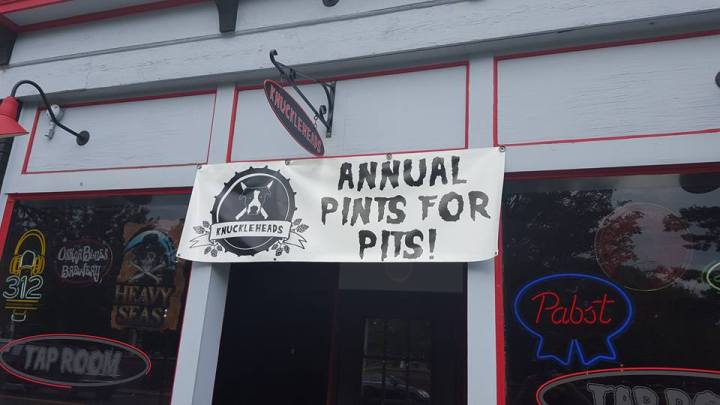 KNUCKLEHEADS
ANNUAL
PINTS FOR
PITS!
KNUCKLEHEADS
312
OSKAR BLUES
BREWERY
HEAVY
SEAS
TAP ROOM
Pabst
TAP ROO